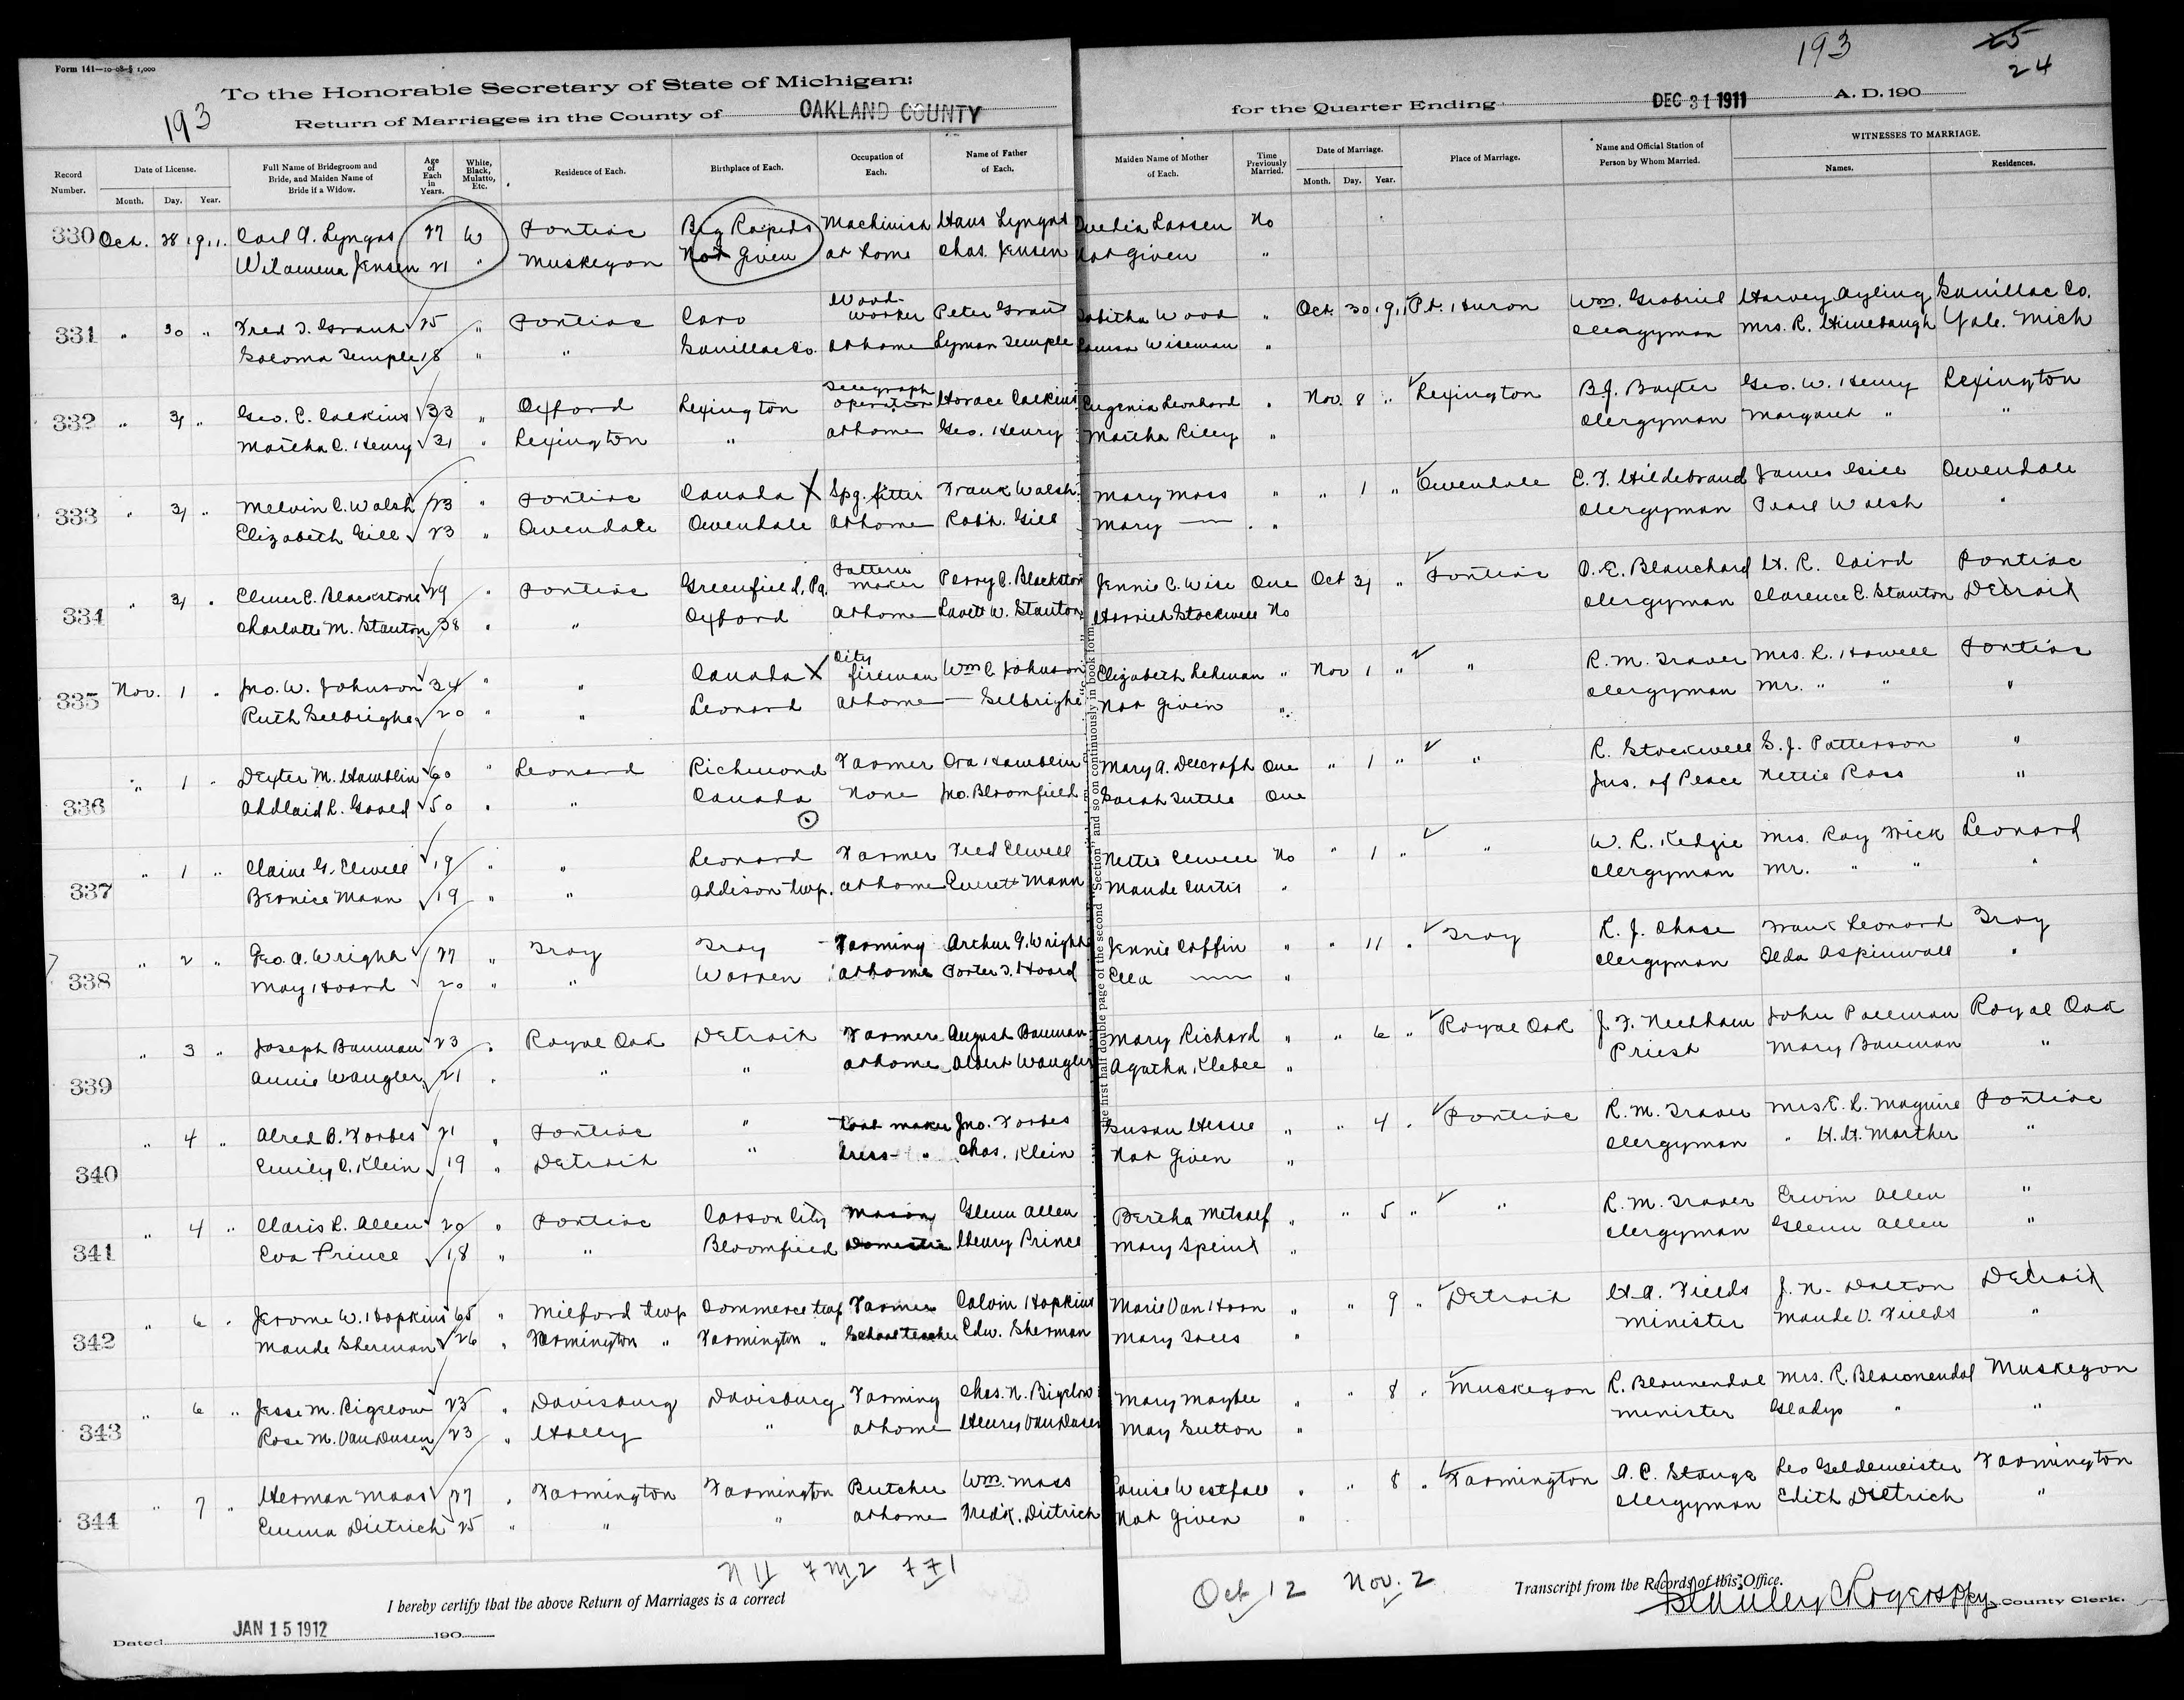 Form 141—10-08-§ 1,000
193
25
24
To the Honorable Secretary of State of Michigan:
193
Return of Marriages in the County of OAKLAND COUNTY for the Quarter Ending DEC 31 1911 A. D. 190
Record Number. Date of License. Month. Day. Year. Full Name of Bridegroom and Bride, and Maiden Name of Bride if a Widow. Age of Each in Years. White, Black, Mulatto, Etc. Residence of Each. Birthplace of Each. Occupation of Each. Name of Father of Each. Maiden Name of Mother of Each. Time Previously Married. Date of Marriage. Month. Day. Year. Place of Marriage. Name and Official Station of Person by Whom Married. WITNESSES TO MARRIAGE. Names. Residences.
330 Oct. 28 1911. Carl A. Lyngas 27 W Pontiac Big Rapids Machinist Hans Lyngas Larsen No
Jensen 21 " Muskegon Not Given at home Chas. Jensen Not Given "
331 " 30 " Fred J. Grant 25 " Pontiac Caro Wood-worker Peter Grant Tabitha Wood " Oct. 30 1911 Pt. Huron Wm. Grabriel Harvey Ayling Sanillac Co.
Saloma Temple 18 " " Sanillac Co. at home Lyman Temple Louisa Wiseman " Clergyman Mrs. R. Himebaugh Yale. Mich
332 " 31 " Geo. C. Calkins 33 " Oxford Lexington Telegraph operator Horace Calkins Eugenia Leonhard " Nov. 8 " Lexington B.J. Baxter Geo. W. Henry Lexington
Martha C. Henry 31 " Lexington " at home Geo. Henry Martha Riley " Clergyman Margaret " "
333 " 31 " Melvin C. Walsh 23 " Pontiac Canada X Spg. fitter Frank Walsh Mary Moss " " 1 " Owendale E. F. Hildebrand James Gill Owendale
Elizabeth Gill 23 " Owendale Owendale at home Robt. Gill Mary — " Clergyman Pearl Walsh "
334 " 31 " Elmer C. Blackstone 29 " Pontiac Greenfield, Pa. Pattern maker Perry C. Blackston Jennie C. Wise One Oct 31 " Pontiac O. E. Blanchard H. R. Laird Pontiac
Charlotte M. Stanton 38 " " Oxford at home W. Stanton Harriet Stockwell No Clergyman Clarence E. Stanton Detroit
335 Nov. 1 " Jno. W. Johnson 34 " " Canada X City fireman Wm C. Johnson Elizabeth Lehman " Nov 1 " " R. M. Traver Mrs. R. Howell Pontiac
Ruth 20 " " Leonard at home — Not Given " Clergyman Mr. " " "
336 " 1 " Dexter M. Hamblin 60 " Leonard Richmond Farmer Ora Hamblin Mary A. One " 1 " " R. Stockwell S. J. Patterson "
50 " " Canada None Jno. Bloomfield Sarah Tuttle One Jus. of Peace Nettie Ross "
337 " 1 " Claire G. Elwell 19 " " Leonard Farmer Fred Elwell Nettie Elwell No " 1 " " W. R. Kedzie Mrs. Ray Frick Leonard
Bernice Mann 19 " " Addison twp. at home Everett Mann Maude Curtis " Clergyman Mr. " " "
338 " 2 " Geo. A. Wright 27 " Troy Troy Farming Arthur G. Wright Jennie Coffin " " 11 " Troy R. J. Chase Frank Leonard Troy
May Hoard 20 " " Warren at home Porter J. Hoard Ella — " Clergyman Ilda Aspinwall "
339 " 3 " Joseph Bauman 23 " Royal Oak Detroit Farmer August Bauman Mary Richard " " 6 " Royal Oak J. F. Needham John Palleman Royal Oak
Annie Waugler 21 " " " at home Albert Waugler Agatha Klebee " Priest Mary Bauman "
340 " 4 " Alred B. Forbes 21 " Pontiac " tool maker Jno. Forbes Susan Hesse " " 4 " Pontiac R. M. Traver Mrs E. R. Maguire Pontiac
Emily C. Klein 19 " Detroit " dress- " Chas. Klein Not Given " Clergyman " H. H. Marther "
341 " 4 " Claris R. Allen 20 " Pontiac Carson City Mason Glenn Allen Bertha Metcalf " " 5 " " R. M. Traver Erwin Allen "
Eva Prince 18 " " Bloomfield Domestic Henry Prince Mary " Clergyman Glenn Allen "
342 " 6 " Jerome W. Hopkins 65 " Milford twp Commerce twp Farmer Calvin Hopkins Marie Van Horn " " 9 " Detroit H. A. Fields J. N. Dalton Detroit
Maude Sherman 26 " Farmington " Farmington " School teacher Edw. Sherman Mary " Minister Maude V. Fields "
343 " 6 " Jesse M. Bigelow 23 " Davisburg Davisburg Farming Chas. N. Bigelow Mary Maybee " " 8 " Muskegon R. Bloemendal Mrs. R. Bloemendal Muskegon
Rose M. VanDusen 23 " Holly " at home Henry VanDusen May Sutton " Minister Gladys " "
344 " 7 " Herman Maas 27 " Farmington Farmington Butcher Wm. Maas Louise Westfall " " 8 " Farmington A. C. Stange Leo Geldemeister Farmington
Emma Dietrich 25 " " " at home Fredk. Dietrich Not Given " Clergyman Edith Dietrich "
"c Section" and so on continuously in book form.
the first half double page of the second
N 11 7 M 2 7 7 1
Oct 12 Nov. 2
I hereby certify that the above Return of Marriages is a correct Transcript from the Records of this Office.
Dated JAN 15 1912 190 County Clerk.